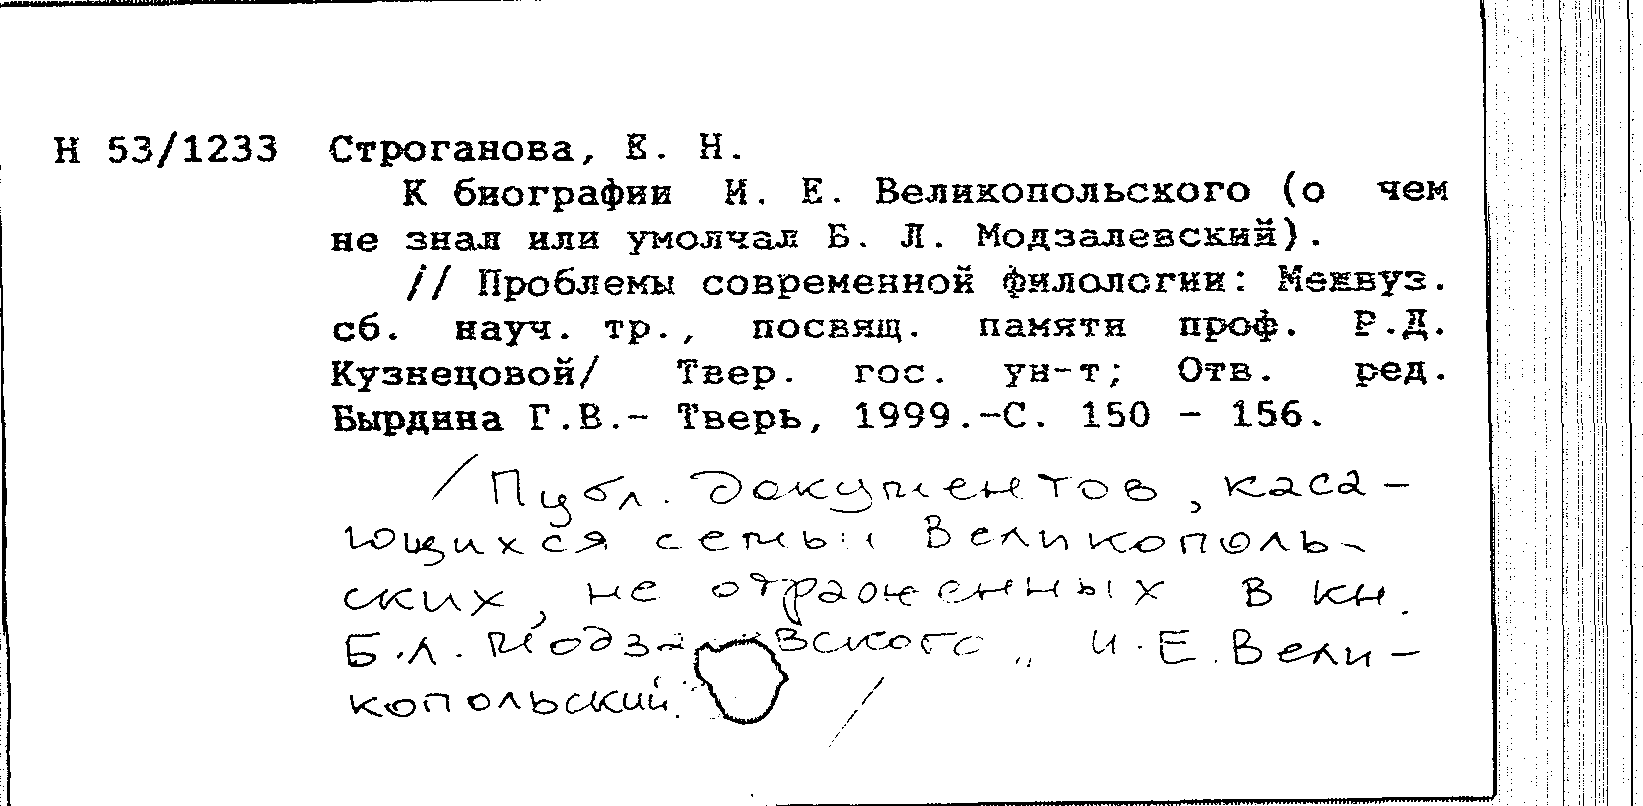 Н 53/1233 Строганова, Е. Н.
К биографии И. Е. Великопольского (о чем
не знал или умолчал Б. Л. Модзалевский).
// Проблемы современной филологии: Межвуз.
сб. науч. тр., посвящ. памяти проф. Р.Д.
Кузнецовой/ Твер. гос. ун-т; Отв. ред.
Бырдина Г.В.- Тверь, 1999.-С. 150 - 156.
/Публ. документов, каса-
ющихся семьи Великополь-
ских, не отраженных в кн.
Б.Л. Модзалевского „И.Е.Вели-
копольский". /